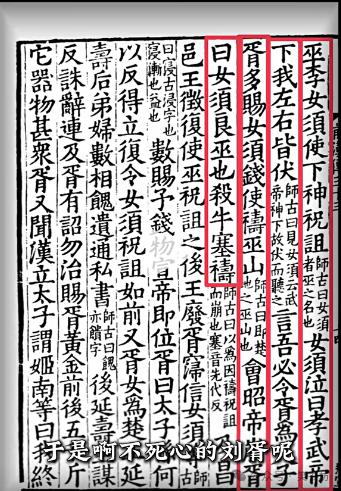 巫李女須使下神祝詛師古曰女須者巫之名也女須泣曰孝武帝
下我左右皆伏師古曰見女須云武帝神下故伏而聽之言吾必令胥為子
胥多賜女須錢使禱巫山師古曰即楚地之巫山也會昭帝胥
曰女須良巫也殺牛塞禱師古曰以為因禱祝詛而崩也塞音先代反
邑王徵復使巫祝詛之後王廢胥寖信女須
曰寖古浸字也寖漸也益也數賜予錢物宣帝即位胥曰太子何
以反得立復令女須祝詛如前又胥女為楚延
壽后弟婦數相餽遺通私書師古曰餽亦饋字後延壽
反誅辭連及胥有詔勿治賜胥黃金前後五斤
它器物甚衆胥又聞漢立太子謂姬南等曰我終
于是啊不死心的刘胥呢